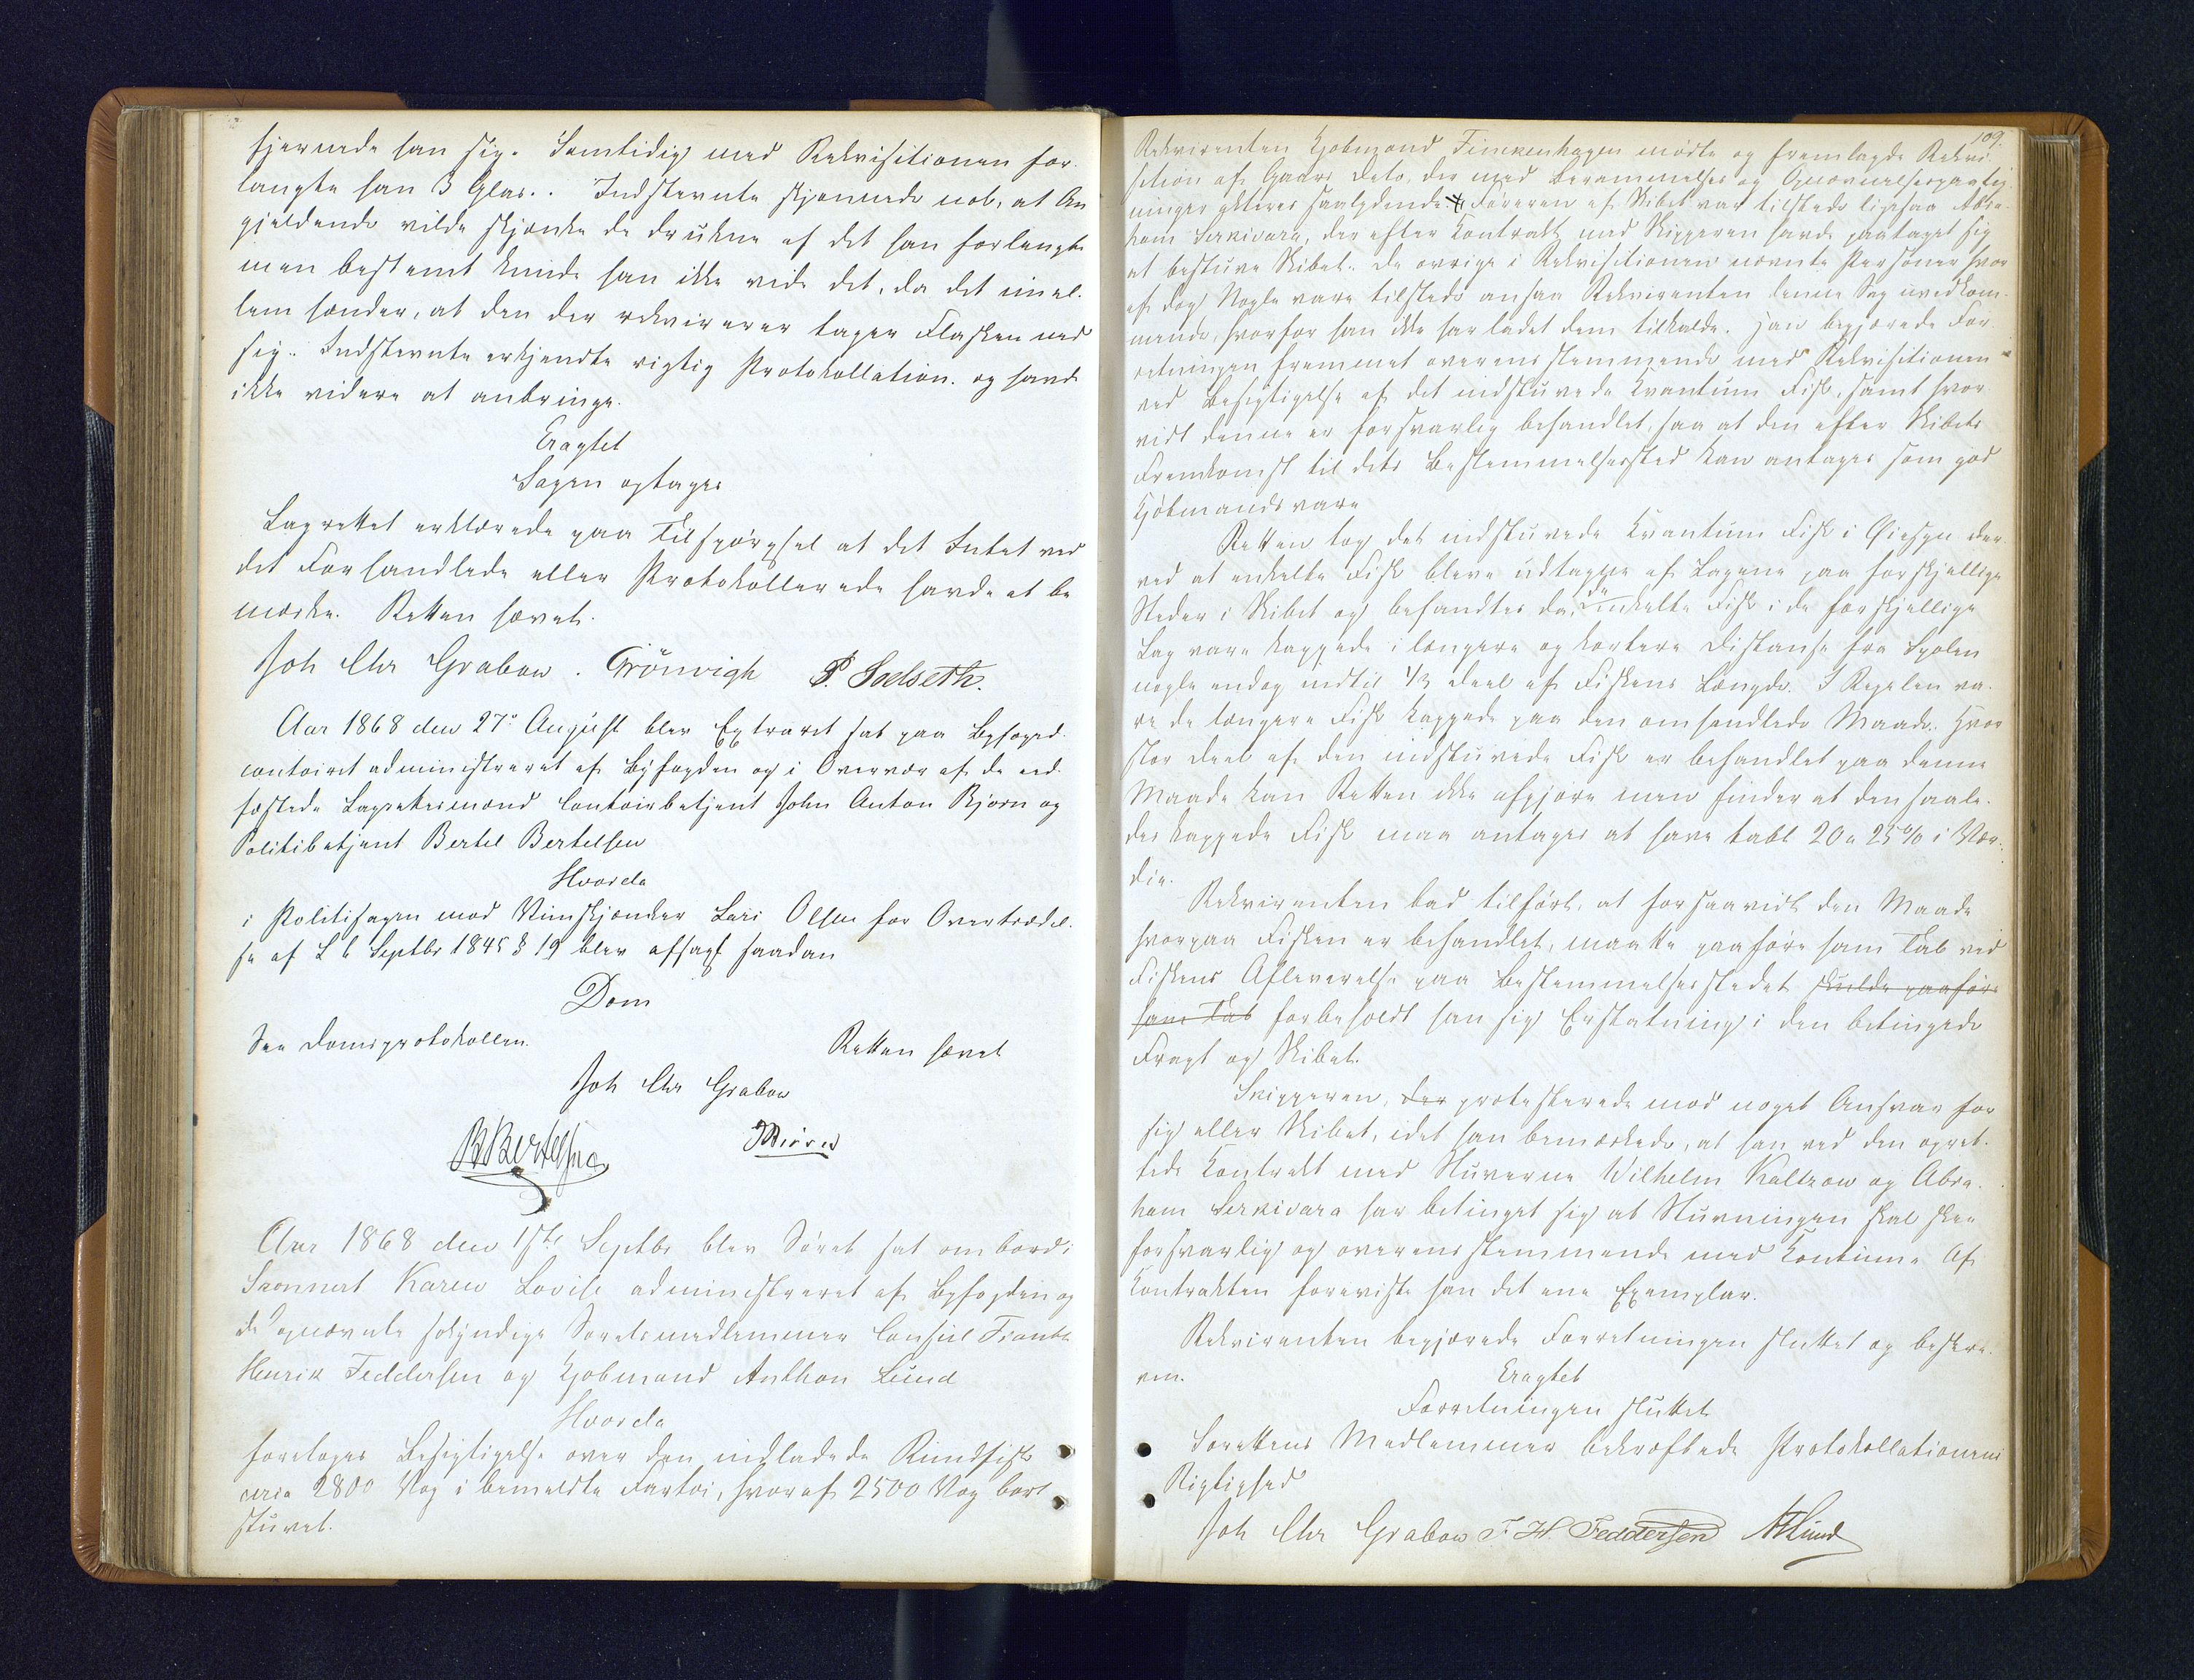 fjernede han sig. Samtidig med Rekvisitionen for-
langte han 3 Glas. Indstevnte skjønnede nok, at An
gjeldende vilde skjænke de drukne af det han forlangte
men bestemt kunde han ikke vide det, da det imel-
lem hænder, at den der rekvirerer tager Flasken med
sig. Indstevnte erkjendte rigtig Protokollation og havde
ikke videre at anbringe.
Eragtet
Sagen optages
Lagrettet erklærede paa Tilspørgsel at det Intet ved
det Forhandlede eller Protokollerede havde at be
mærke. Retten hævet.
Joh Chr Grabow. Grönvigh P. Soelseth.
Aar 1868 den 27de August blev Extraret sat paa Byfoged-
contoiret administreret af Byfogden og i Overvær af de eed-
fæstede Lagrettesmænd Contoirbetjent John Anton Bjørn og
Politibetjent Bertel Bertelsen
Hvorda
i Politisagen mod Viinskjænker Lars Olsen for Overtrædel-
se af L 6 Septbr 1845 § 19 blev afsagt saadan
Dom
See Domsprotokollen.
Retten hævet
Joh Chr Grabow
B Bertelsen
JABiørn
Aar 1868 den 1ste Septbr blev Søret sat ombord i
Skonnert Karen Lovise administreret af Byfogden og
de opnævnte søkyndige Søretsmedlemmer Consul
Henrik Feddersen og Kjøbmand Anthon Lund
Hvorda
foretoges Besigtigelse over den indladede Rundfisk
circa 2800 Vog i bemeldte Fartøi, hvoraf 2500 Vog bort
stuvet.
109.
Rekvirenten Kjøbmand Finckenhagen mødte og fremlagde Rekvi-
sition af Gaars Dato, der med Berammelses og Opnævnelsespaateg-
ninger akteres saalydende # Føreren af Skibet var tilstede ligesaa Abra-
ham Serkivara, der efter Kontrakt med Skipperen havde paataget sig
at bestuve Skibet. De øvrige i Rekvisitionen nævnte Personer hvor
af dog Nogle vare tilstede ansaa Rekvirenten denne Sag uvedkom-
mende, hvorfor han ikke har ladet dem tilkalde. Han begjærede For
retningen fremmet overensstemmende med Rekvisitionen
ved Besigtigelse af det indstuvede Kvantum Fisk, samt hvor
vidt denne er forsvarlig behandlet, saa at den efter Skibets
Fremkomst til dets Bestemmelsessted kan antages som god
Kjøbmandsvare
Retten tog det indstuvede Kvantum Fisk i Øiesyn der-
ved at enkelte Fisk bleve udtagne af Lagene paa forskjellige
Steder i Skibet og befandtes da, de enkelte Fisk i de forskjellige
Lag vare kappede i længere og kortere Distanse fra Spolen
nogle endog indtil 1/3 Deel af Fiskens Længde. I Regelen va-
re de længere Fisk kappede paa den omhandlede Maade. Hvor
stor Deel af den indstuvede Fisk er behandlet paa denne
Maade kan Retten ikke afgjøre men finder at den saale-
des kappede Fisk maa antages at have tabt 20 a 25 % i Vær-
die.
Rekvirenten bad tilført, at forsaavidt den Maade
hvorpaa Fisken er behandlet, maatte paaføre ham Tab ved
Fiskens Afleverelse paa Bestemmelsesstedet skulde paaføre
ham Tab forbeholdt han sig Erstatning i den betingede
Fragt og Skibet.
Skipperen, der protesterede mod noget Ansvar for
sig eller Skibet, idet han bemærkede, at han ved den opret-
tede Kontrakt med Stuverne Wilhelm Kaltzow og Abra-
ham Serkivara har betinget sig at Stuvningen skal skee
forsvarlig og overensstemmende med Coutume. Af
Kontrakten foreviste han det ene Exemplar.
Rekvirenten begjærede Forretningen sluttet og beskre-
ven.
Eragtet
Forretningen sluttet
Sørettens Medlemmer bekræftede Protokollationens
Rigtighed
Joh Chr Grabow F. H. Feddersen ALund